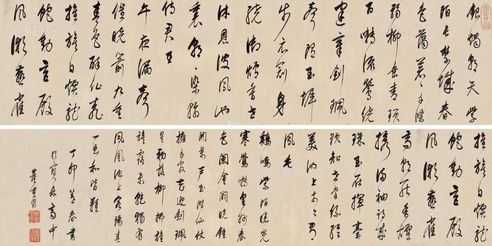 銀燭朝天紫
陌長禁城春
色曉蒼蒼千條
弱柳垂青瑣
百囀流鶯繞
建章劍珮
聲隨玉墀
步衣冠身
惹御爐香共
沐恩波鳳池
上朝朝染
翰侍君王
五夜漏聲
催曉箭九重
春色醉仙桃
旌旗日暖龍
蛇動宮殿
風微燕雀
旌旗日暖龍
蛇動宮殿
風微燕雀
高朝罷香煙
攜滿袖詩成
珠玉在揮毫
欲知世掌絲綸
美池上于今有
鳳毛
雞鳴紫陌曙光
寒鶯囀皇州春
色闌金闕曉鐘
開萬戶玉階仙仗
擁千官花迎劍珮
星初落柳拂旌
旗露未乾獨有
鳳凰池上客陽春
一曲和皆難
丁卯首春書
董其昌